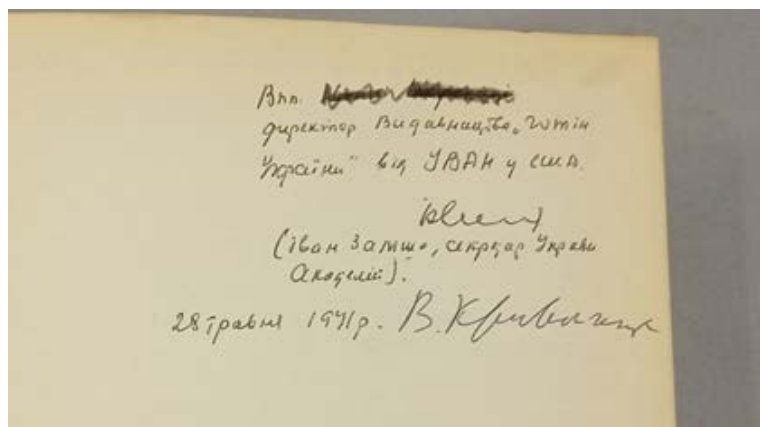 Впп.
директор Видавництва
України" від УВАН у США.
(Іван Замша, секретар Управи
Академії).
28 травня 1971р. В.